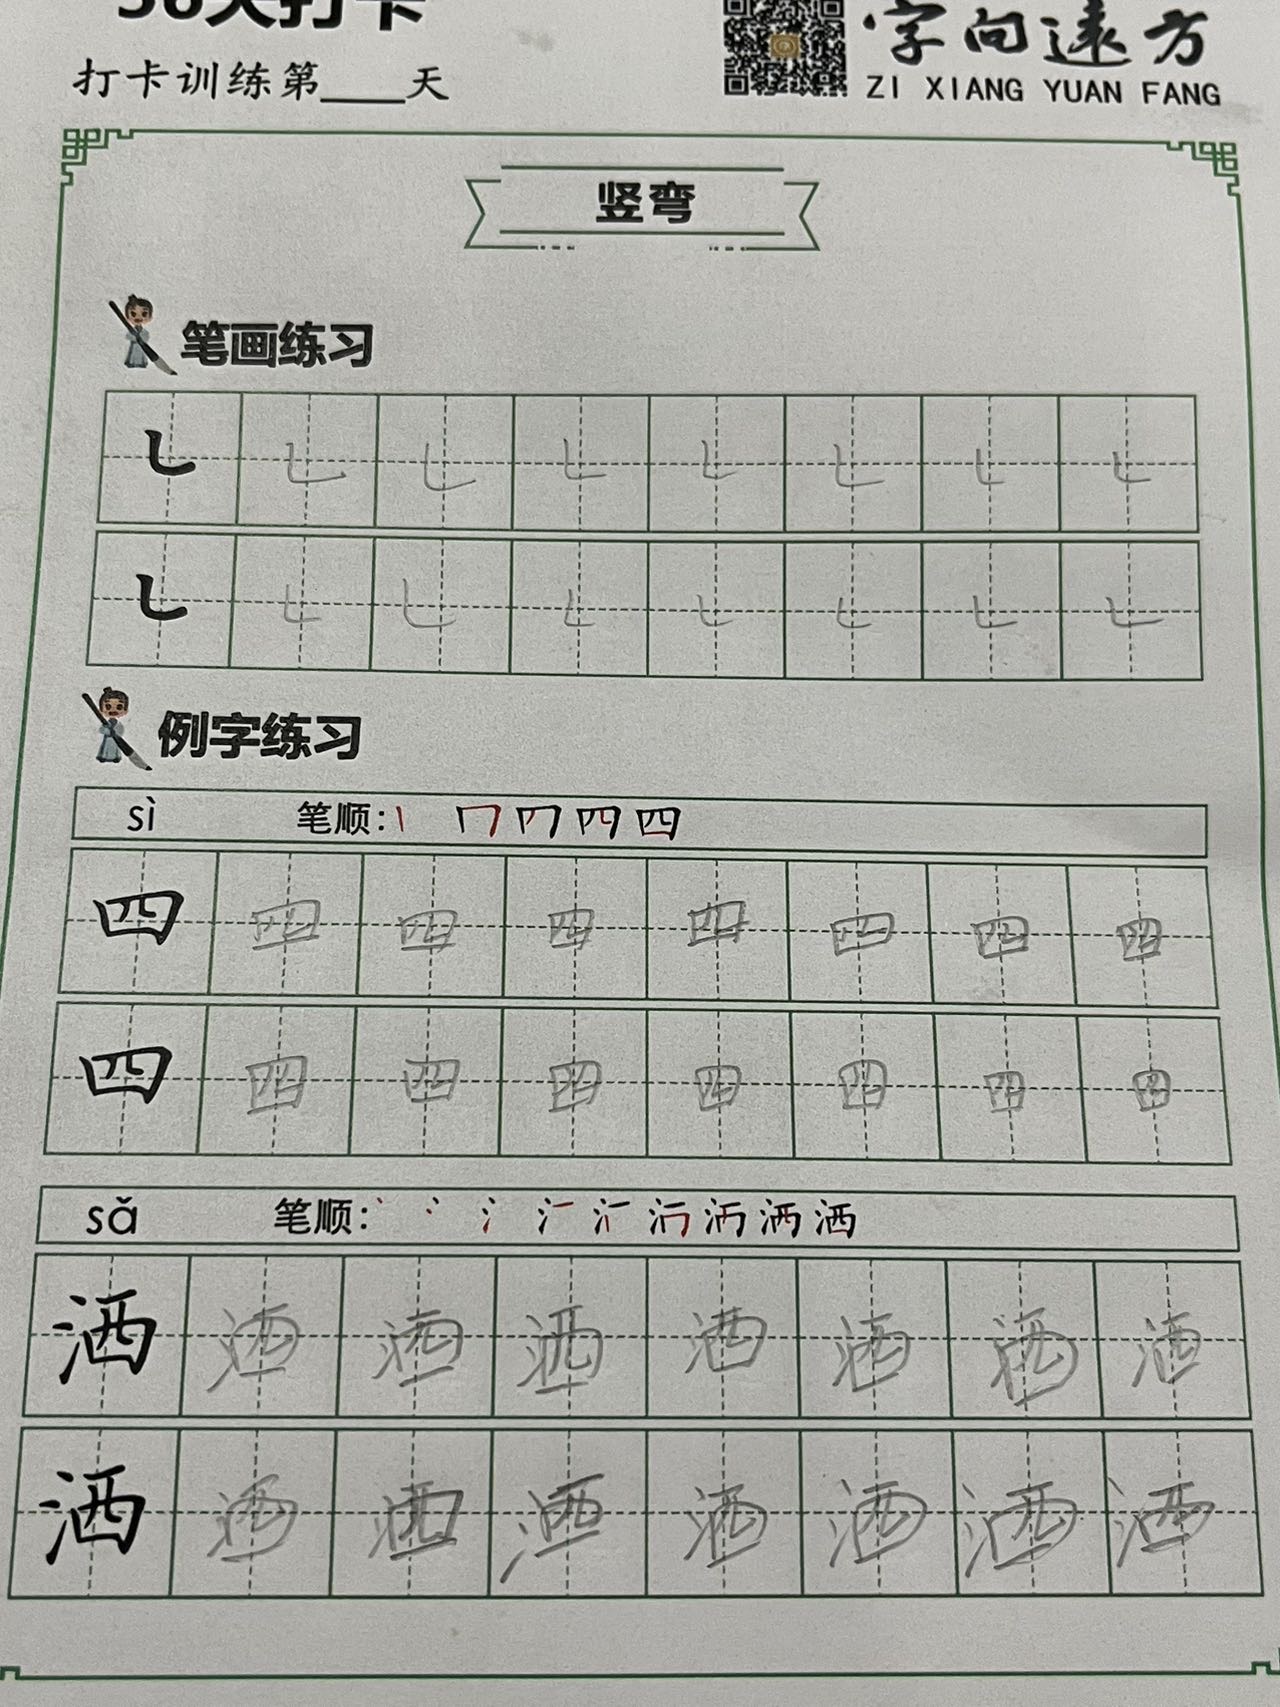 30天打卡
字向远方
打卡训练第____天
ZI XIANG YUAN FANG
竖弯
笔画练习
㇄ ㇄ ㇄ ㇄ ㇄ ㇄ ㇄ ㇄
㇄ ㇄ ㇄ ㇄ ㇄ ㇄ ㇄ ㇄
例字练习
sì 笔顺:
四 四 四 四 四 四 四 四
四 四 四 四 四 四 四 四
sǎ 笔顺:
洒 洒 洒 洒 洒 洒 洒 洒
洒 洒 洒 洒 洒 洒 洒 洒